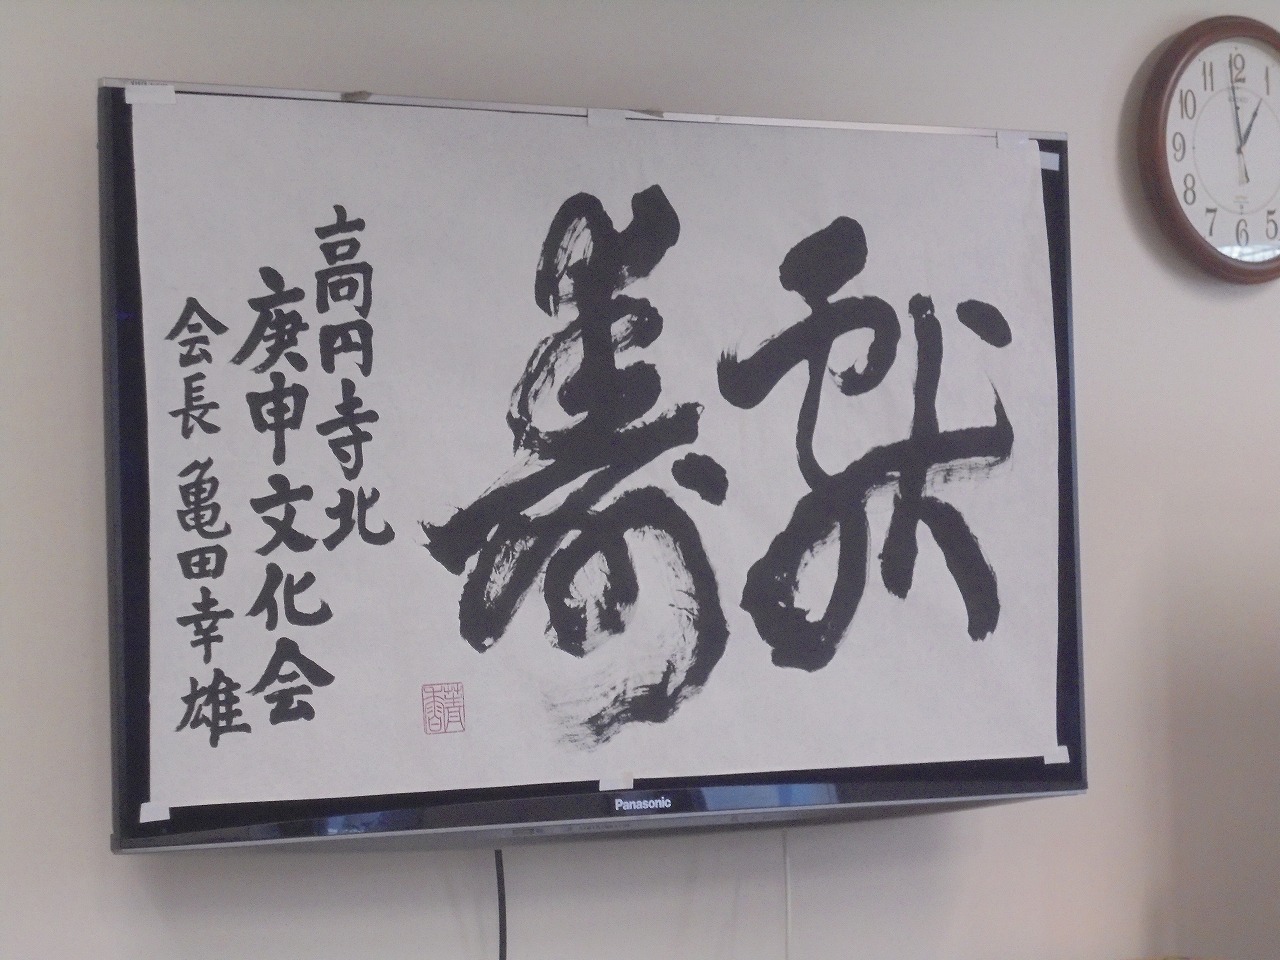 献寿
高円寺北
庚申文化会
会長 亀田幸雄
Panasonic
11 12 1
10
9
8
7 6 5